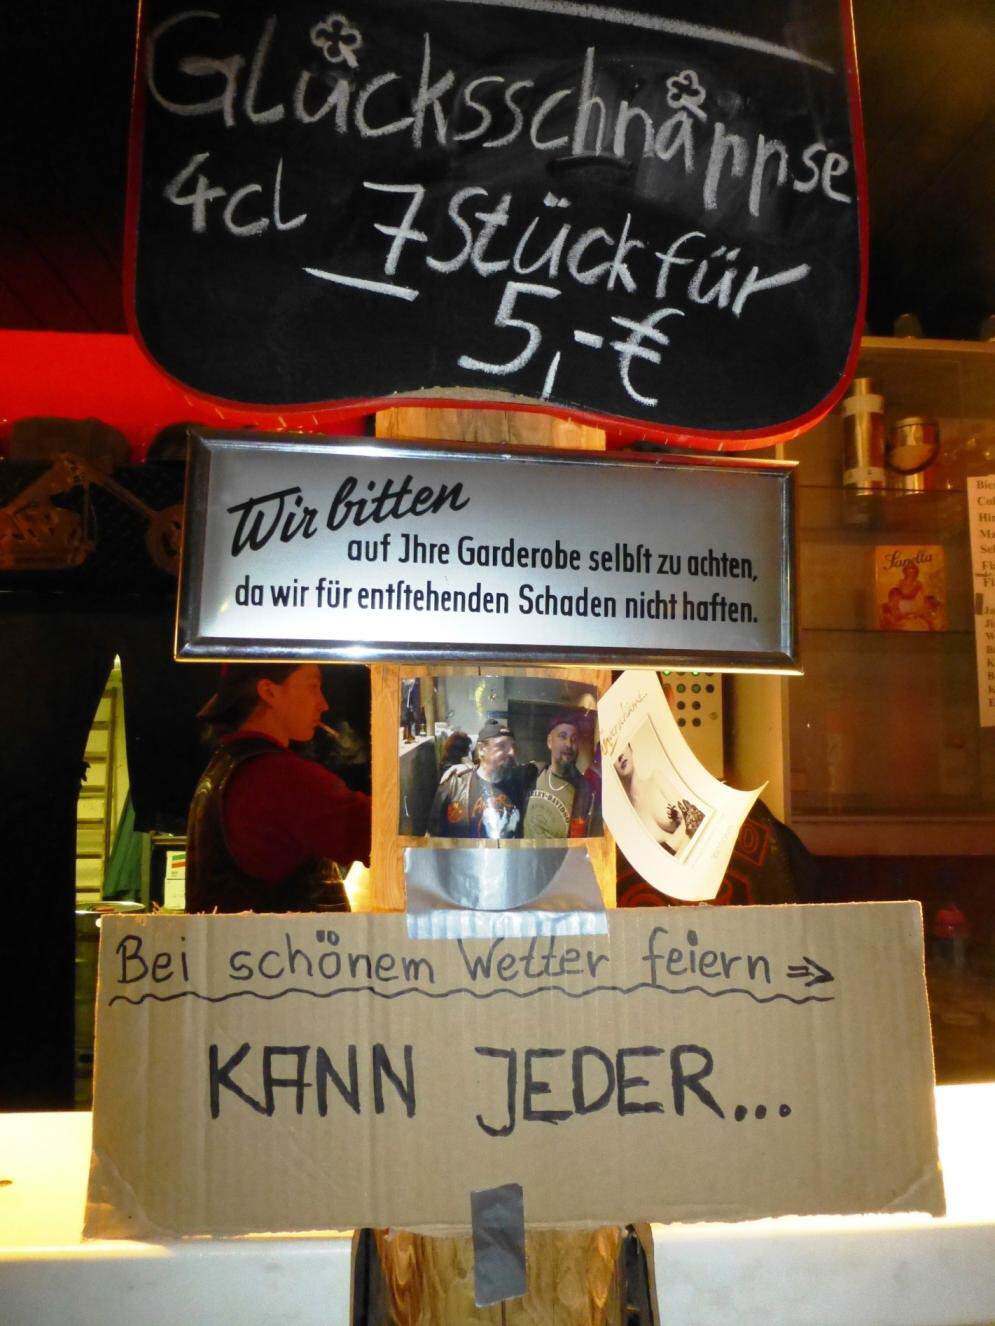 Glücksschnäppse
4cl 7 Stück für
5,-€
Wir bitten
auf Jhre Garderobe selbſt zu achten,
da wir für entſtehenden Schaden nicht haften.
Sanella
Bei schönem Wetter feiern ⇒
KANN JEDER...